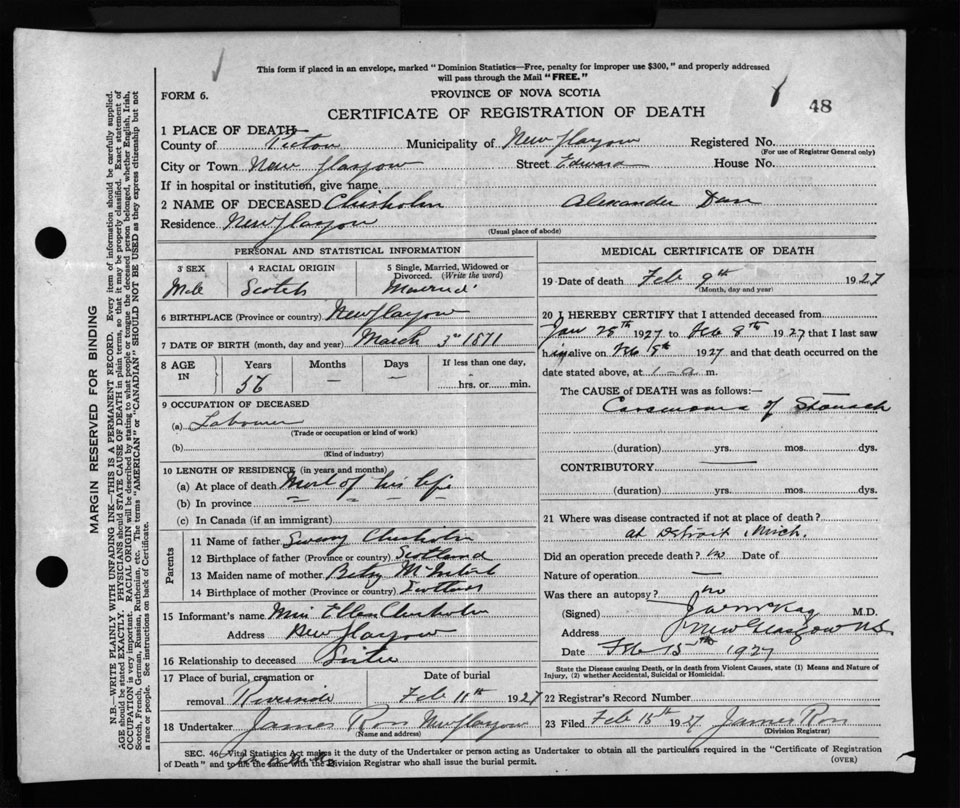 This form if placed in an envelope, marked "Dominion Statistics—Free, penalty for improper use $300," and properly addressed
will pass through the Mail "FREE."
FORM 6.
PROVINCE OF NOVA SCOTIA
48
CERTIFICATE OF REGISTRATION OF DEATH
1 PLACE OF DEATH
County of Pictou Municipality of New Glasgow Registered No.
(For use of Registrar General only)
City or Town New Glasgow Street Edward House No.
If in hospital or institution, give name
2 NAME OF DECEASED Chisholm Alexander Dan
Residence New Glasgow
(Usual place of abode)
PERSONAL AND STATISTICAL INFORMATION
3 SEX 4 RACIAL ORIGIN 5 Single, Married, Widowed or
Divorced. (Write the word)
Male Scotch Married
6 BIRTHPLACE (Province or country) New Glasgow
7 DATE OF BIRTH (month, day and year) March 3rd 1871
8 AGE IN Years Months Days If less than one day,
56 — — hrs. or min.
9 OCCUPATION OF DECEASED
(a) Labourer
(Trade or occupation or kind of work)
(b)
(Kind of industry)
10 LENGTH OF RESIDENCE (in years and months)
(a) At place of death Most of his life
(b) In province
(c) In Canada (if an immigrant)
Parents
11 Name of father Chisholm
12 Birthplace of father (Province or country) Scotland
13 Maiden name of mother Betsy
14 Birthplace of mother (Province or country)
15 Informant's name Miss Ellen Chisholm
Address New Glasgow
16 Relationship to deceased Sister
17 Place of burial, cremation or Date of burial
removal Riverside Feb 11th 1927
18 Undertaker James Ross New Glasgow
(Name and address)
MEDICAL CERTIFICATE OF DEATH
19 Date of death Feb 9th 1927
(Month, day and year)
20 I HEREBY CERTIFY that I attended deceased from
Jan 28th 1927 to Feb 8th 1927 that I last saw
him alive on Feb 8th 1927 and that death occurred on the
date stated above, at 1 a m.
The CAUSE of DEATH was as follows:—
Carsinoma of Stomach
(duration) yrs. mos. dys.
CONTRIBUTORY
(duration) yrs. mos. dys.
21 Where was disease contracted if not at place of death?
at Detroit Mich.
Did an operation precede death? no Date of
Nature of operation —
Was there an autopsy? no
(Signed) M.D.
Address New Glasgow N.S.
Date Feb 15th 1927
State the Disease causing Death, or in death from Violent Causes, state (1) Means and Nature of
Injury, (2) whether Accidental, Suicidal or Homicidal.
22 Registrar's Record Number
23 Filed Feb 15th 1927 James Ross
(Division Registrar)
SEC. 46—Vital Statistics Act makes it the duty of the Undertaker or person acting as Undertaker to obtain all the particulars required in the "Certificate of Registration
of Death" and to file the same with the Division Registrar who shall issue the burial permit.
(OVER)
MARGIN RESERVED FOR BINDING
N.B.—WRITE PLAINLY WITH UNFADING INK—THIS IS A PERMANENT RECORD. Every item of information should be carefully supplied.
AGE should be stated EXACTLY. PHYSICIANS should STATE CAUSE OF DEATH in plain terms, so that it may be properly classified. Exact statement of
OCCUPATION is very important. RACIAL ORIGIN will be described by stating to what people or tongue the deceased person belonged, whether English, Irish,
Scotch, French, German, Russian, Ruthenian, etc. The terms "AMERICAN" or "CANADIAN" SHOULD NOT BE USED as they express citizenship but not
a race or people. See instructions on back of Certificate.